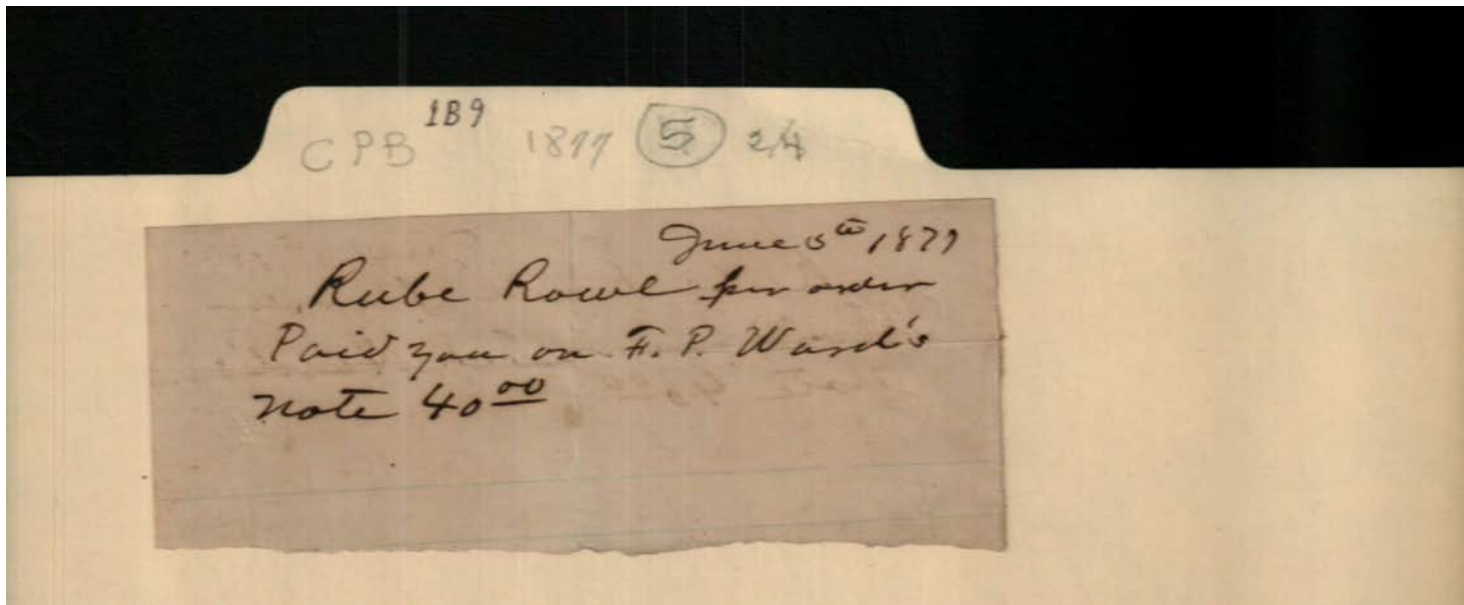 CPB 1B9 1877 5 24
June 5th 1877
Rube Rowl per order
Paid you on F. P. Ward's
note 40 00